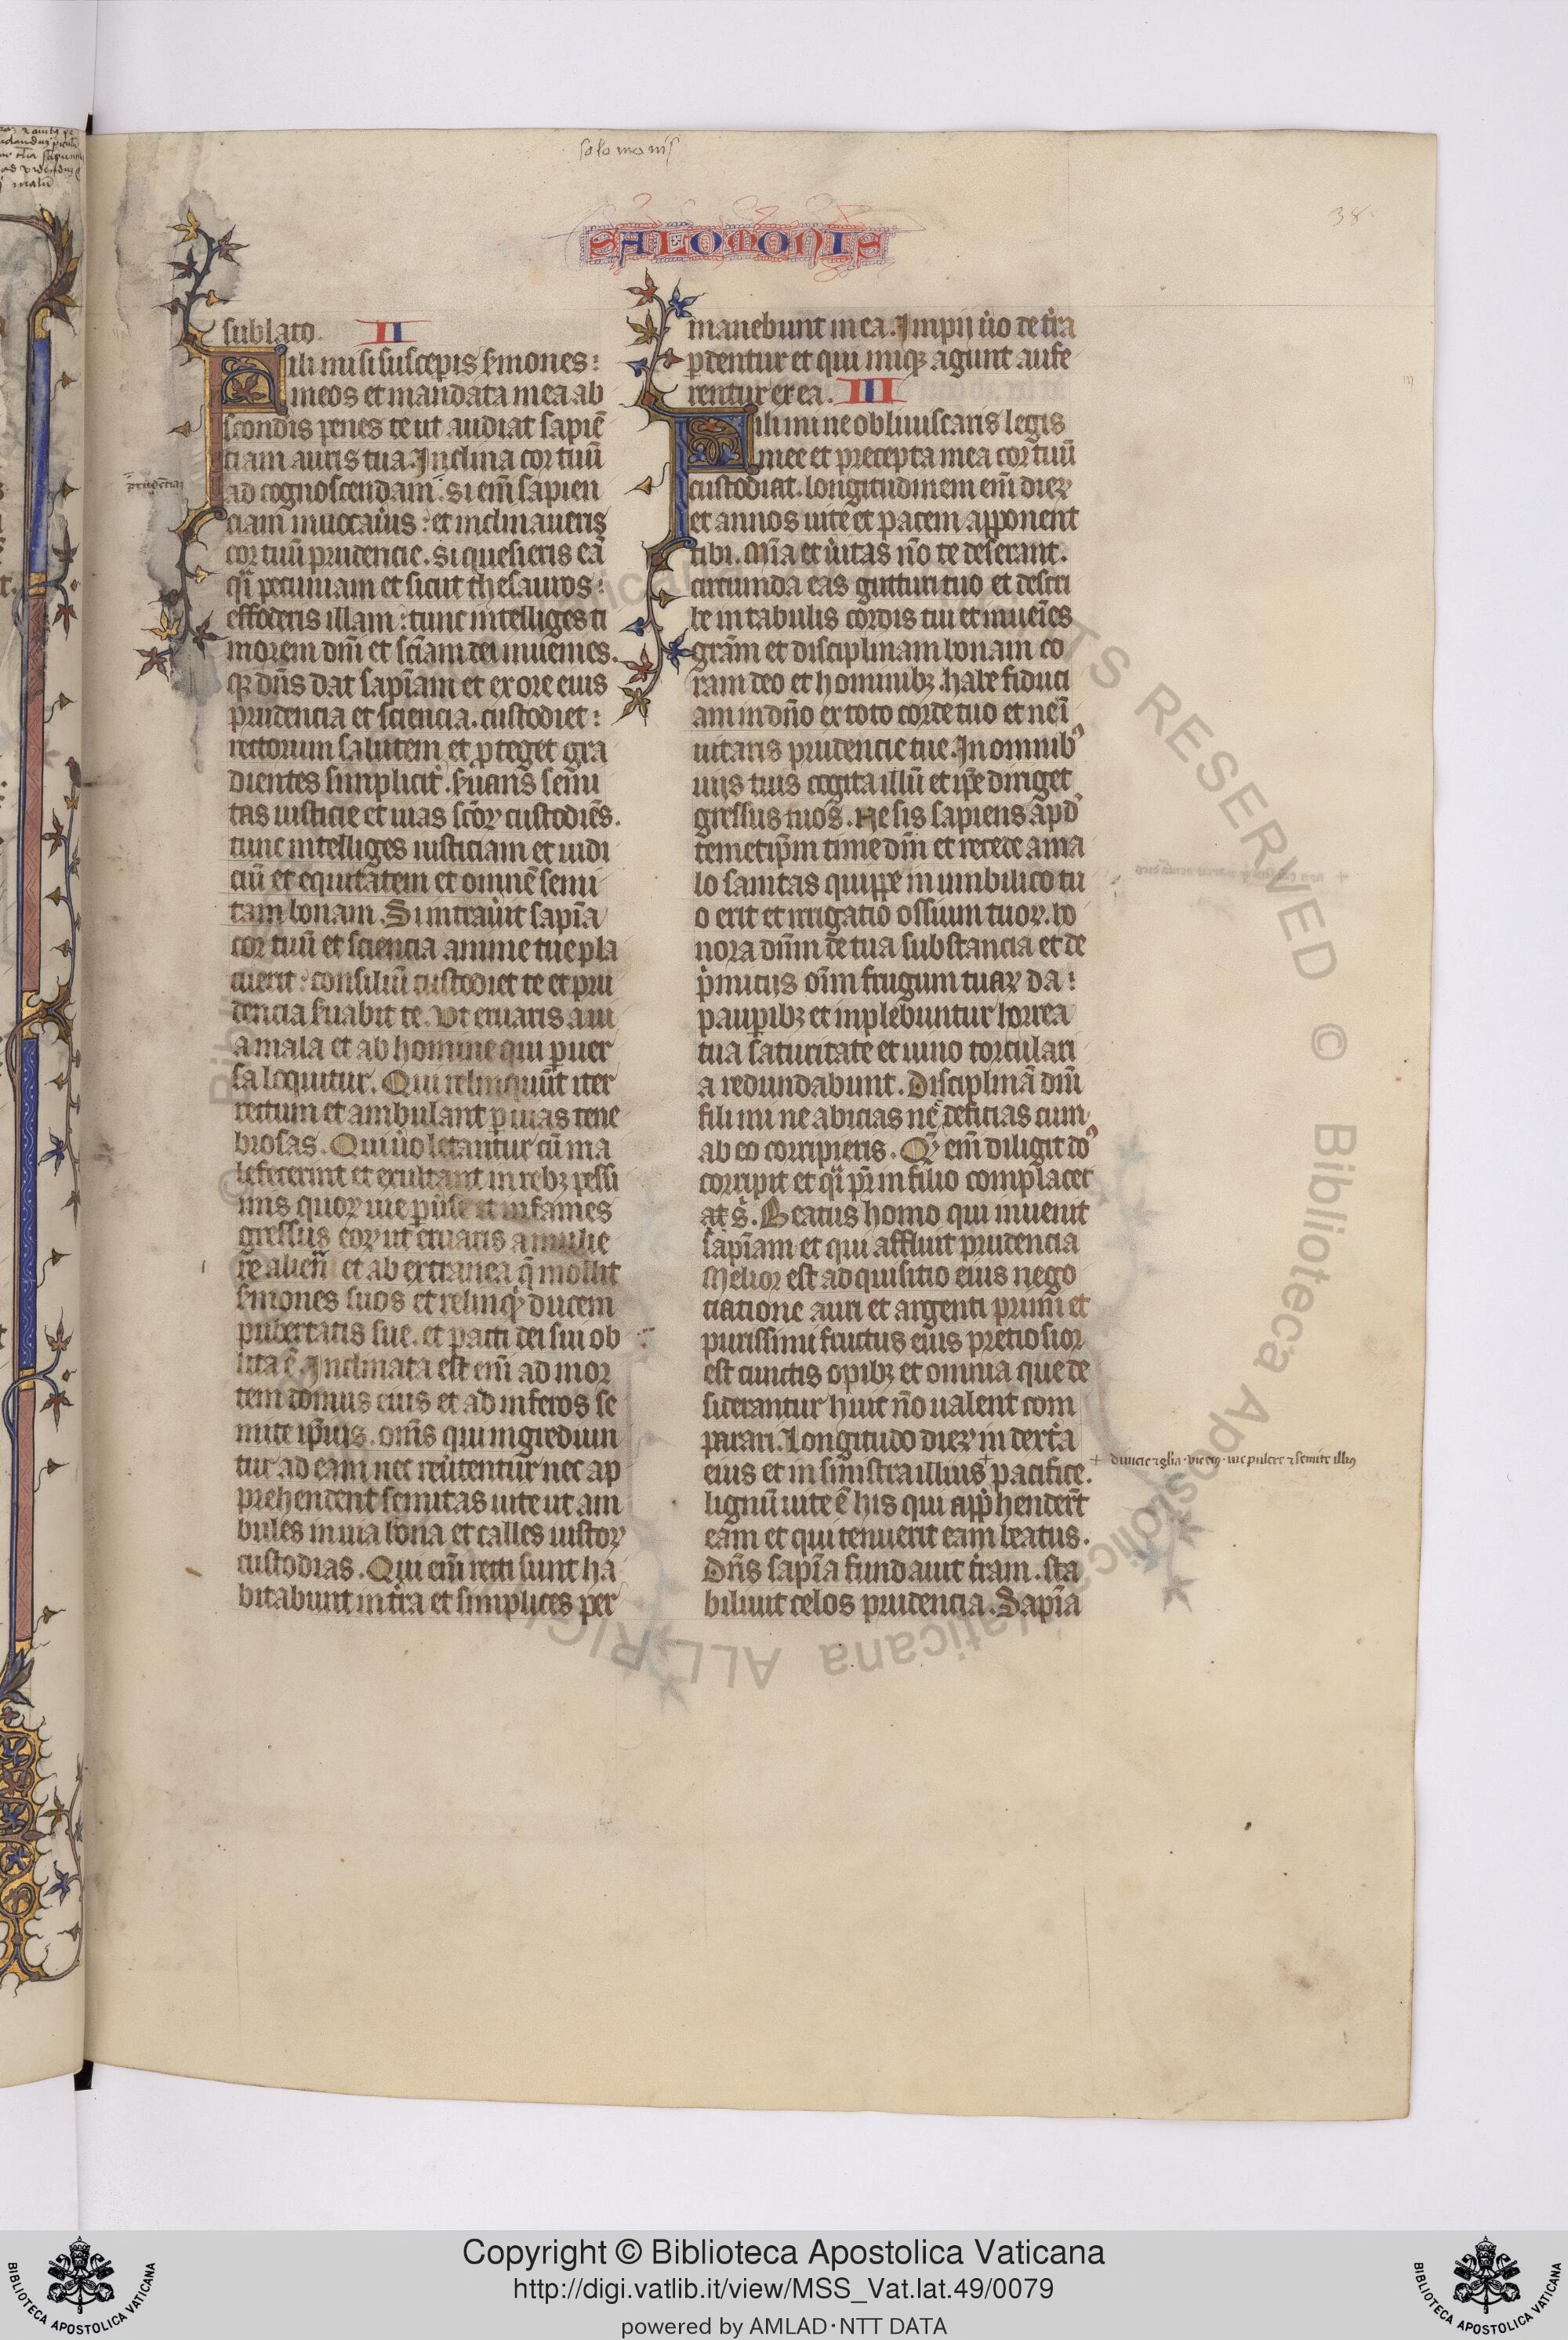 solomonis
SALOMONIS
38
sublato. II
Fili mi si susceperis s̉mones:
meos et mandata mea ab
scondis penes te ut audiat sapiē
ciam auris tua. Inclina cor tuū
prudēciaȝ
ad cognoscendam. si em̄ sapien
ciam inuocau̓is: et inclinaueris
cor tuū prudencie. si quesieris eā
q̄i pecuniam et sicut thesauros:
effoderis illam: tunc intelliges ti
morem dn̄i et sc̄iam dei inuenies.
qꝛ dn̄s dat sapīam et ex ore eius
prudencia et sciencia. custodiet:
rectorum salutem et ꝓteget gra
dientes simplicit̓. s̓uans semi
tas iusticie et uias sc̄oꝝ custodiēs.
tunc intelliges iusticiam et iudi
ciū et equitatem et omnē semi
tam bonam. Si intrau̓it sapīa
cor tuū et sciencia anime tue pla
cuerit: consiliū custodiet te et pru
dencia s̓uabit te. Vt eruaris a ui
a mala et ab homine qui ꝑuer
sa loquitur. Qui relinquūt iter
rectum et ambulant ꝑ uias tene
brosas. Qui u̓o letantur cū ma
lefecerint et exultant in rebȝ pessi
mis quoꝝ uie ꝑu̓se et infames
gressus eoꝝ ut eruaris a mulie
re alien̄ et ab extranea q̄ mollit
s̓mones suos et relinqͥꝫ ducem
pubertatis sue. et pacti dei sui ob
lita ē. Inclinata est em̄ ad mor
tem domus eius et ad inferos se
mite ip̄ius. om̄s qui ingrediun
tur ad eam nec reu̓tentur nec ap
prehendent semitas uite ut am
bules in uia bona et calles iustoꝝ
custodias. Qui em̄ recti sunt ha
bitabunt in t̓ra et simplices per
manebunt in ea. Impii u̓o de t̓ra
ꝑdentur et qui iniqꝫ agunt aufe
rentur ex ea. III
Fili mi ne obliuiscaris legis
mee et precepta mea cor tuū
custodiat. longitudinem em̄ dieꝝ
et annos uite et pacem apponent
tibi. Mīa et u̓itas nō te deserant.
circumda eas gutturi tuo et descri
be in tabulis cordis tui et inuenies
grām et disciplinam bonam co
ram deo et hominibȝ. habe fiduci
am in dn̄o ex toto corde tuo et ne ī
nitaris prudencie tue. In omnibꝰ
uiis tuis cogita illū et ip̄e diriget
gressus tuos. Ne sis sapiens apd̓
temetip̄m time dm̄ et recede a ma
lo sanitas quippe in umbilico tu
o erit et irrigatio ossium tuoꝝ. ho
nora dn̄m de tua substancia et de
p̓mitiis om̄m frugum tuaꝝ da:
pauꝑibȝ et inplebuntur horrea
tua saturitate et uino torculari
a redundabunt. Disciplinā dn̄i
fili mi ne abicias nec deficias cum
ab eo corripieris. Qͫ em̄ diligit dn̄s
corripit et q̄i pr̄ in filio complacet
at s̓. Beatus homo qui inuenit
sapīam et qui affluit prudencia
Melior est adquisitio eius nego
ciatione auri et argenti primi et
purissimi fructus eius pretiosior
est cunctis opibȝ et omnia que de
siderantur huic nō ualent com
parari. Longitudo dieꝝ in dext̓a
eius et in sinistra illius + pacifice.
+ diuicie ⁊ gl̄ia. vie eiꝰ. uie pulcre ⁊ semite illiꝰ
lignū uite ē his qui app̓henderīt
eam et qui tenuerit eam beatus.
Dn̄s sapīa fundauit t̓ram. sta
biliuit celos prudencia. Sapīa
© Biblioteca Apostolica Vaticana ALL RIGHTS RESERVED
Copyright © Biblioteca Apostolica Vaticana
http://digi.vatlib.it/view/MSS_Vat.lat.49/0079
powered by AMLAD·NTT DATA
BIBLIOTECA APOSTOLICA VATICANA
BIBLIOTECA APOSTOLICA VATICANA